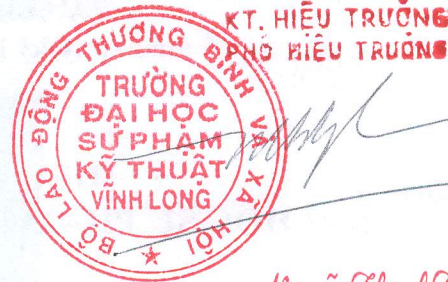 KT. HIỆU TRƯỞNG
PHÓ HIỆU TRƯỞNG
BỘ LAO ĐỘNG THƯƠNG BINH VÀ XÃ HỘI
TRƯỜNG
ĐẠI HỌC
SƯ PHẠM
KỸ THUẬT
VĨNH LONG